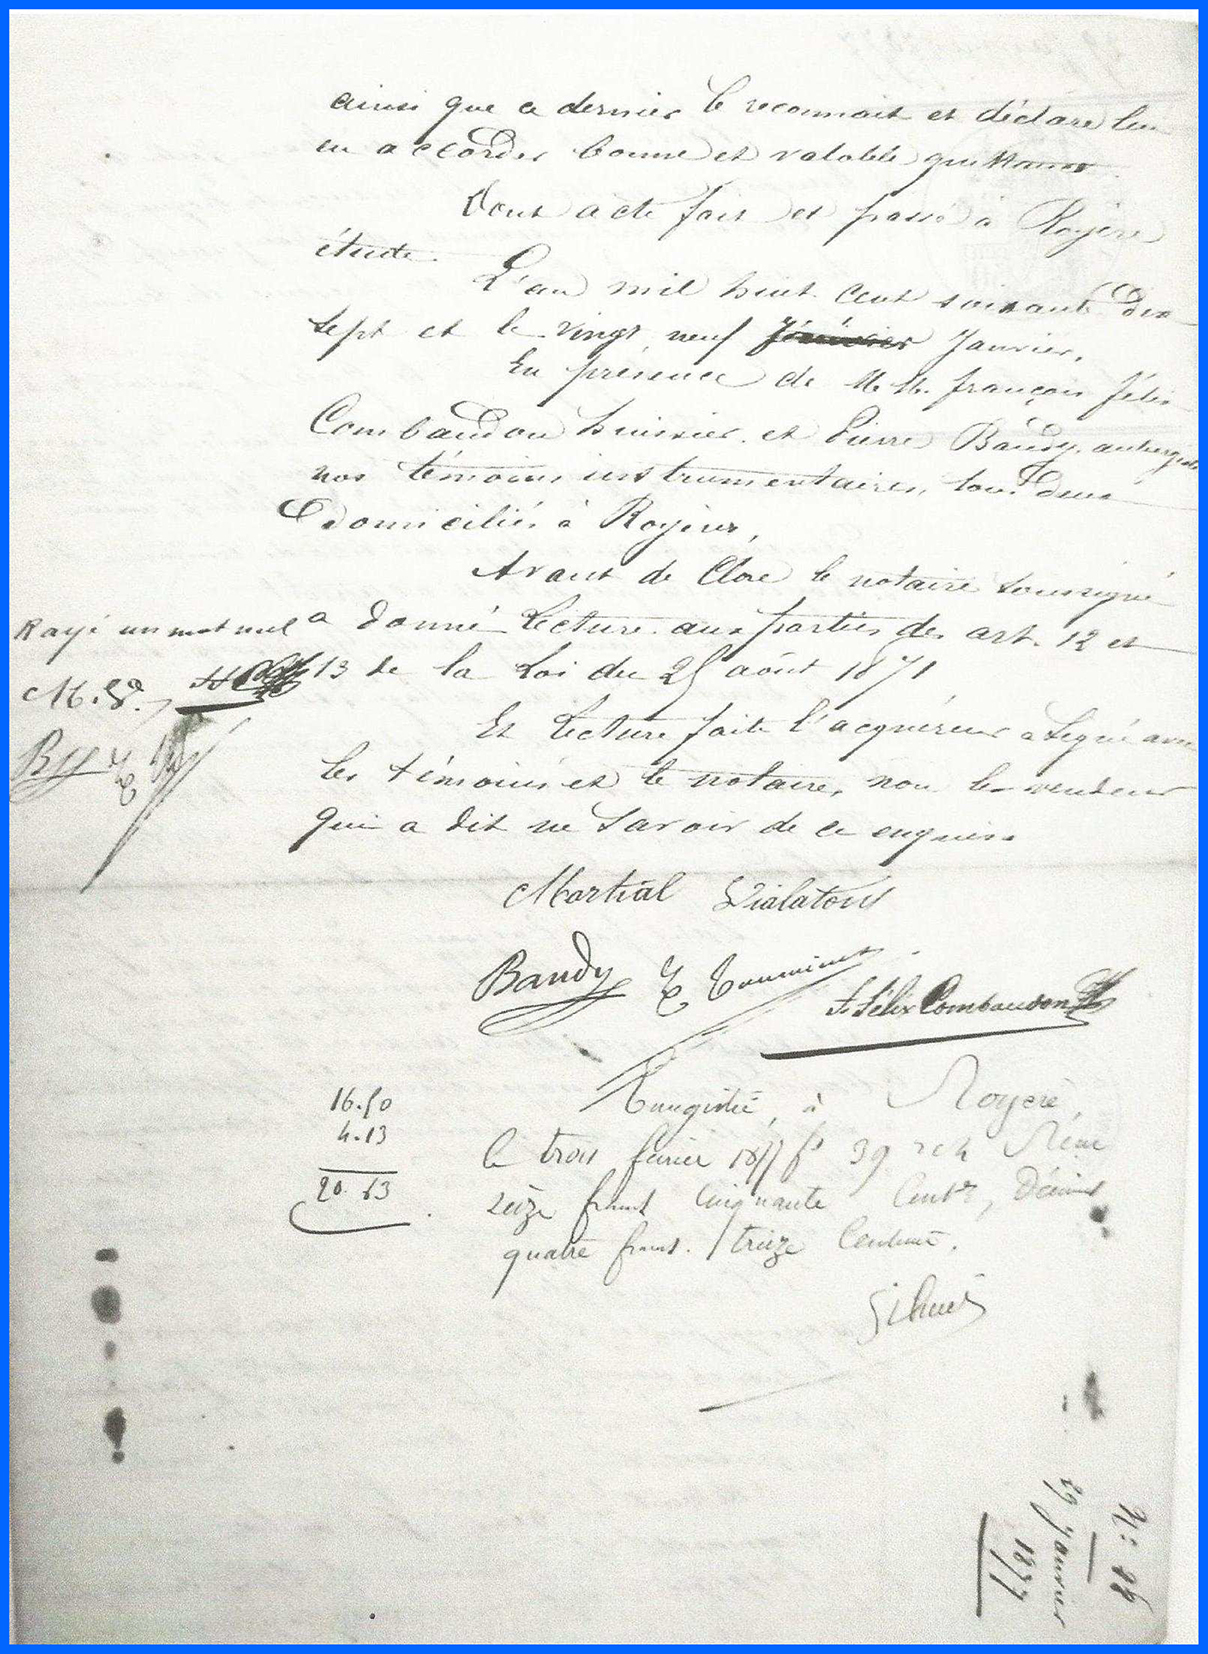 ainsi que ce dernier le reconnait et déclare leur
en accorder bonne et valable quittance.
Dont acte fait et passé à Royère
étude.
L'an mil huit cent soixante dix
sept et le vingt neuf Janvier.
En présence de M.M. françois félix
Combaudon huissier et Pierre Baudy, aubergiste
nos témoins instrumentaires, tous deux
domiciliés à Royère,
Avant de Clore le notaire soussigné
a donné lecture aux parties des art. 12 et
13 de la Loi du 23 août 1871
Rayé un mot nul
M.V.
By
Et lecture faite l'acquéreur a signé avec
les témoins et le notaire, non le vendeur
qui a dit ne savoir de ce enquis.
Martial Vialatoux
Baudy
F. félix Combaudon
16.50
4.13
20.63
Enregistré, à Royère,
le trois février 1877 f° 39 Reçu
seize francs cinquante Cent.s, Décimes
quatre francs treize Centimes.
N: 26
29 Janvier
1877